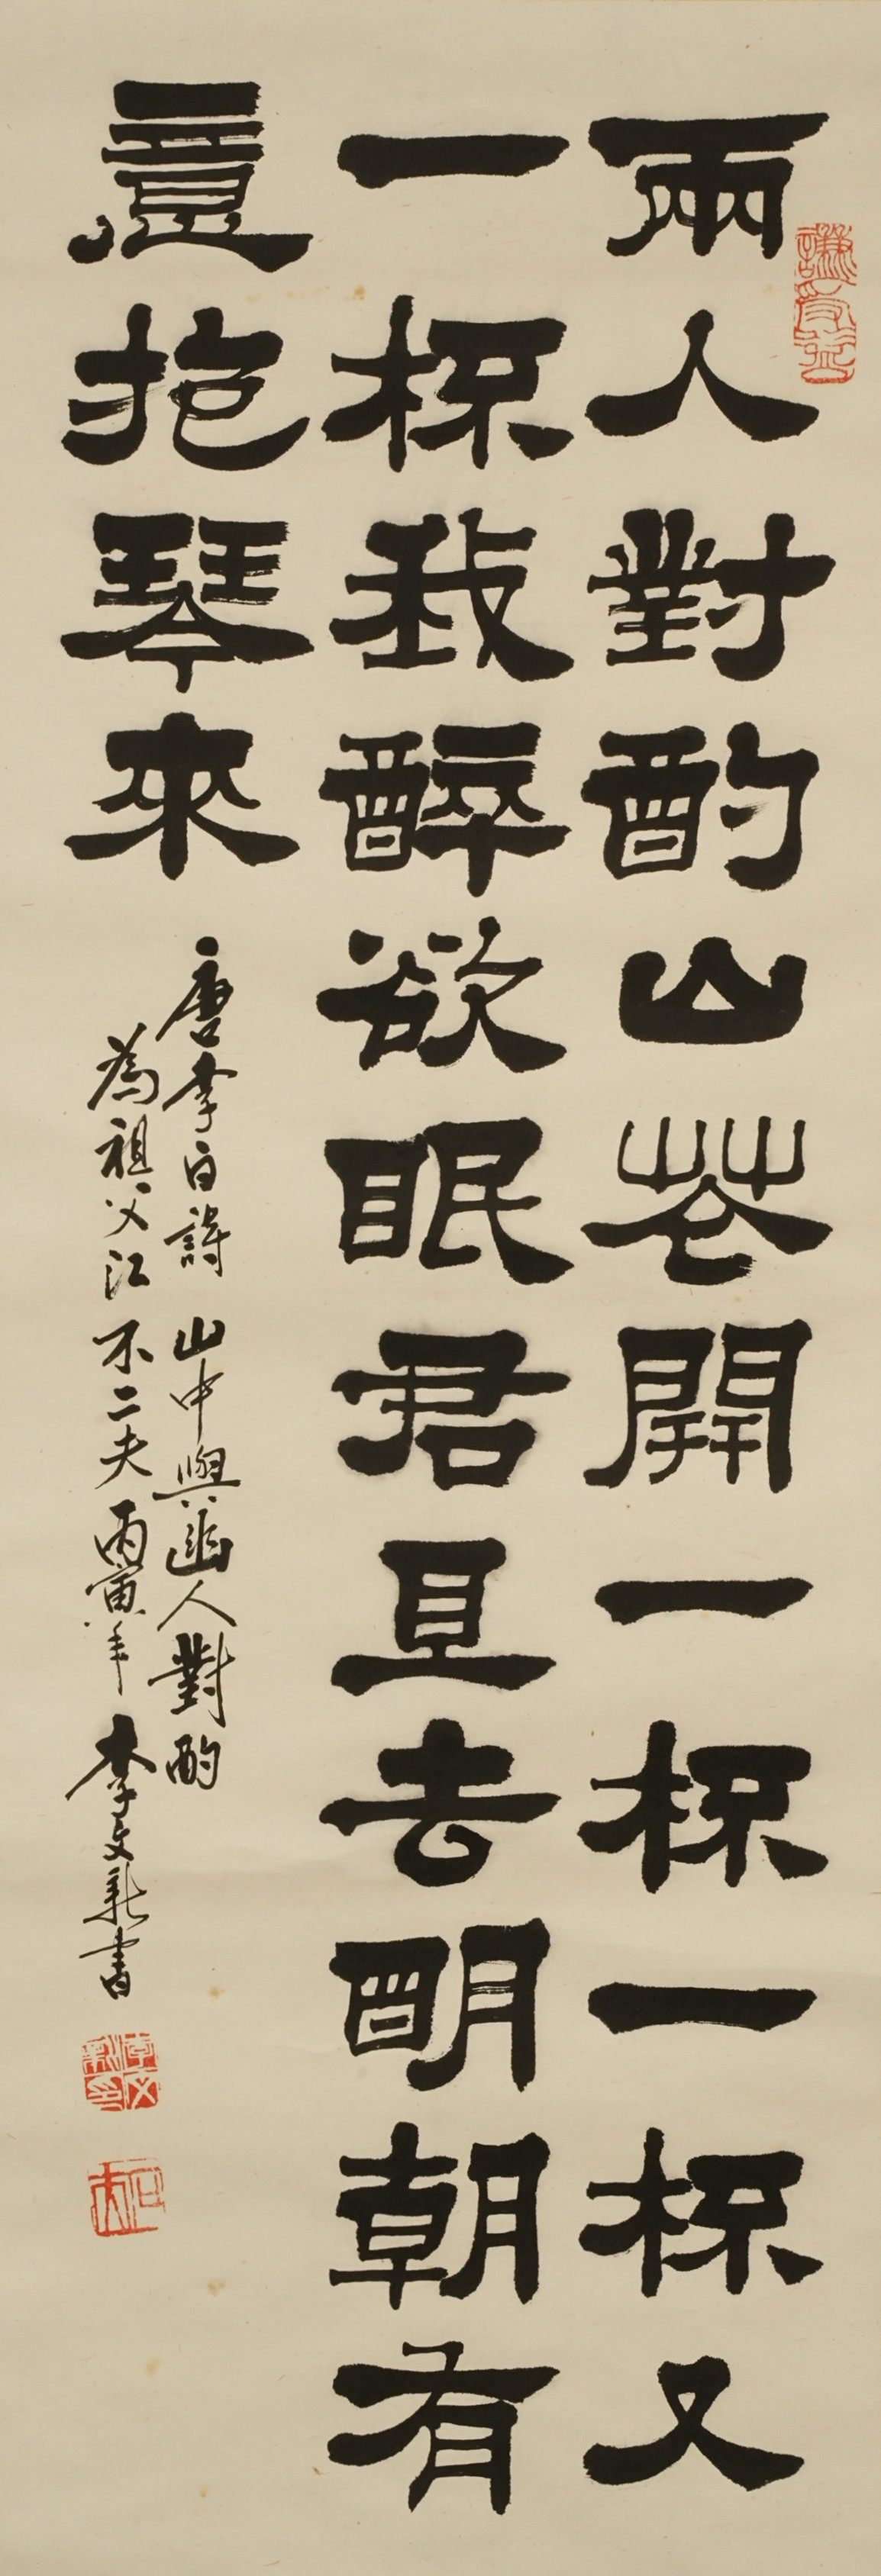 謙受益
兩人對酌山花開一杯一杯又
一杯我醉欲眠君且去明朝有
意抱琴來
唐李白詩 山中與幽人對酌
為祖父江不二夫 丙寅年 李文新書
李文新印